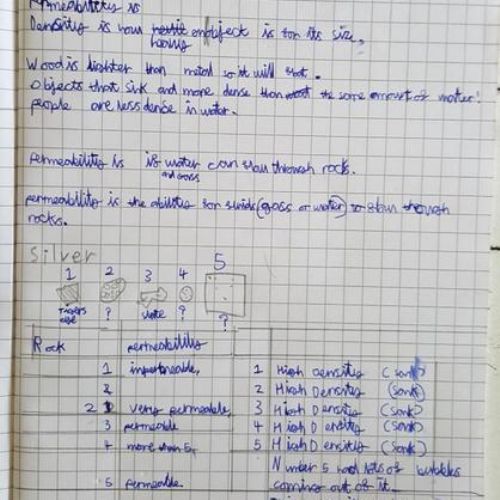 Permeabilitey is
Density is how heavy an object is for its size,
Wood is lighter than metal so it will float.
Objects that sink and more dense than the same amount of water!
people are less dense in water.
permeability is if water can flow through rock.
and gass
permeability is the abilitey for fluids (gass or water) to flow through
rocks.
Silver
1 2 3 4 5
Tigers eye ? slate ? ?
Rock permeability
1 impermeable, 1 High density (sank)
2 2 High Density (sank)
2 very permeable, 3 High Density (sank)
3 permeable 4 High Density (sank)
4 more than 5, 5 High Density (sank)
Number 5 had lots of bubbles
5 permeable. coming out of it.